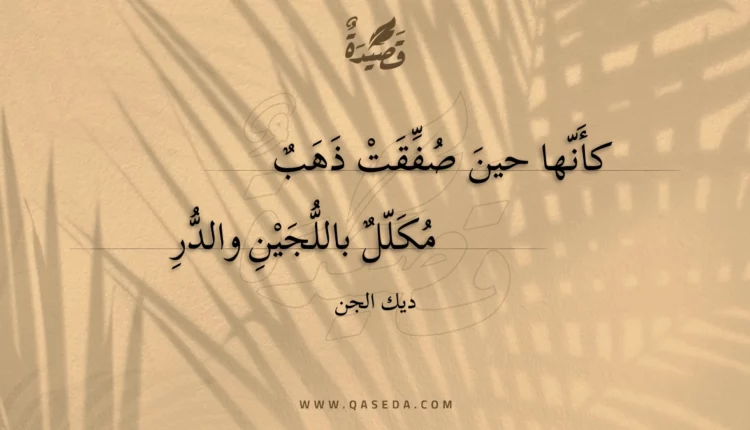 قَصِيدَةٌ
كأَنّها حينَ صُفِّقَتْ ذَهَبٌ
مُكَلّلٌ باللُّجَيْنِ والدُّرِ
ديك الجن
WWW.QASEDA.COM